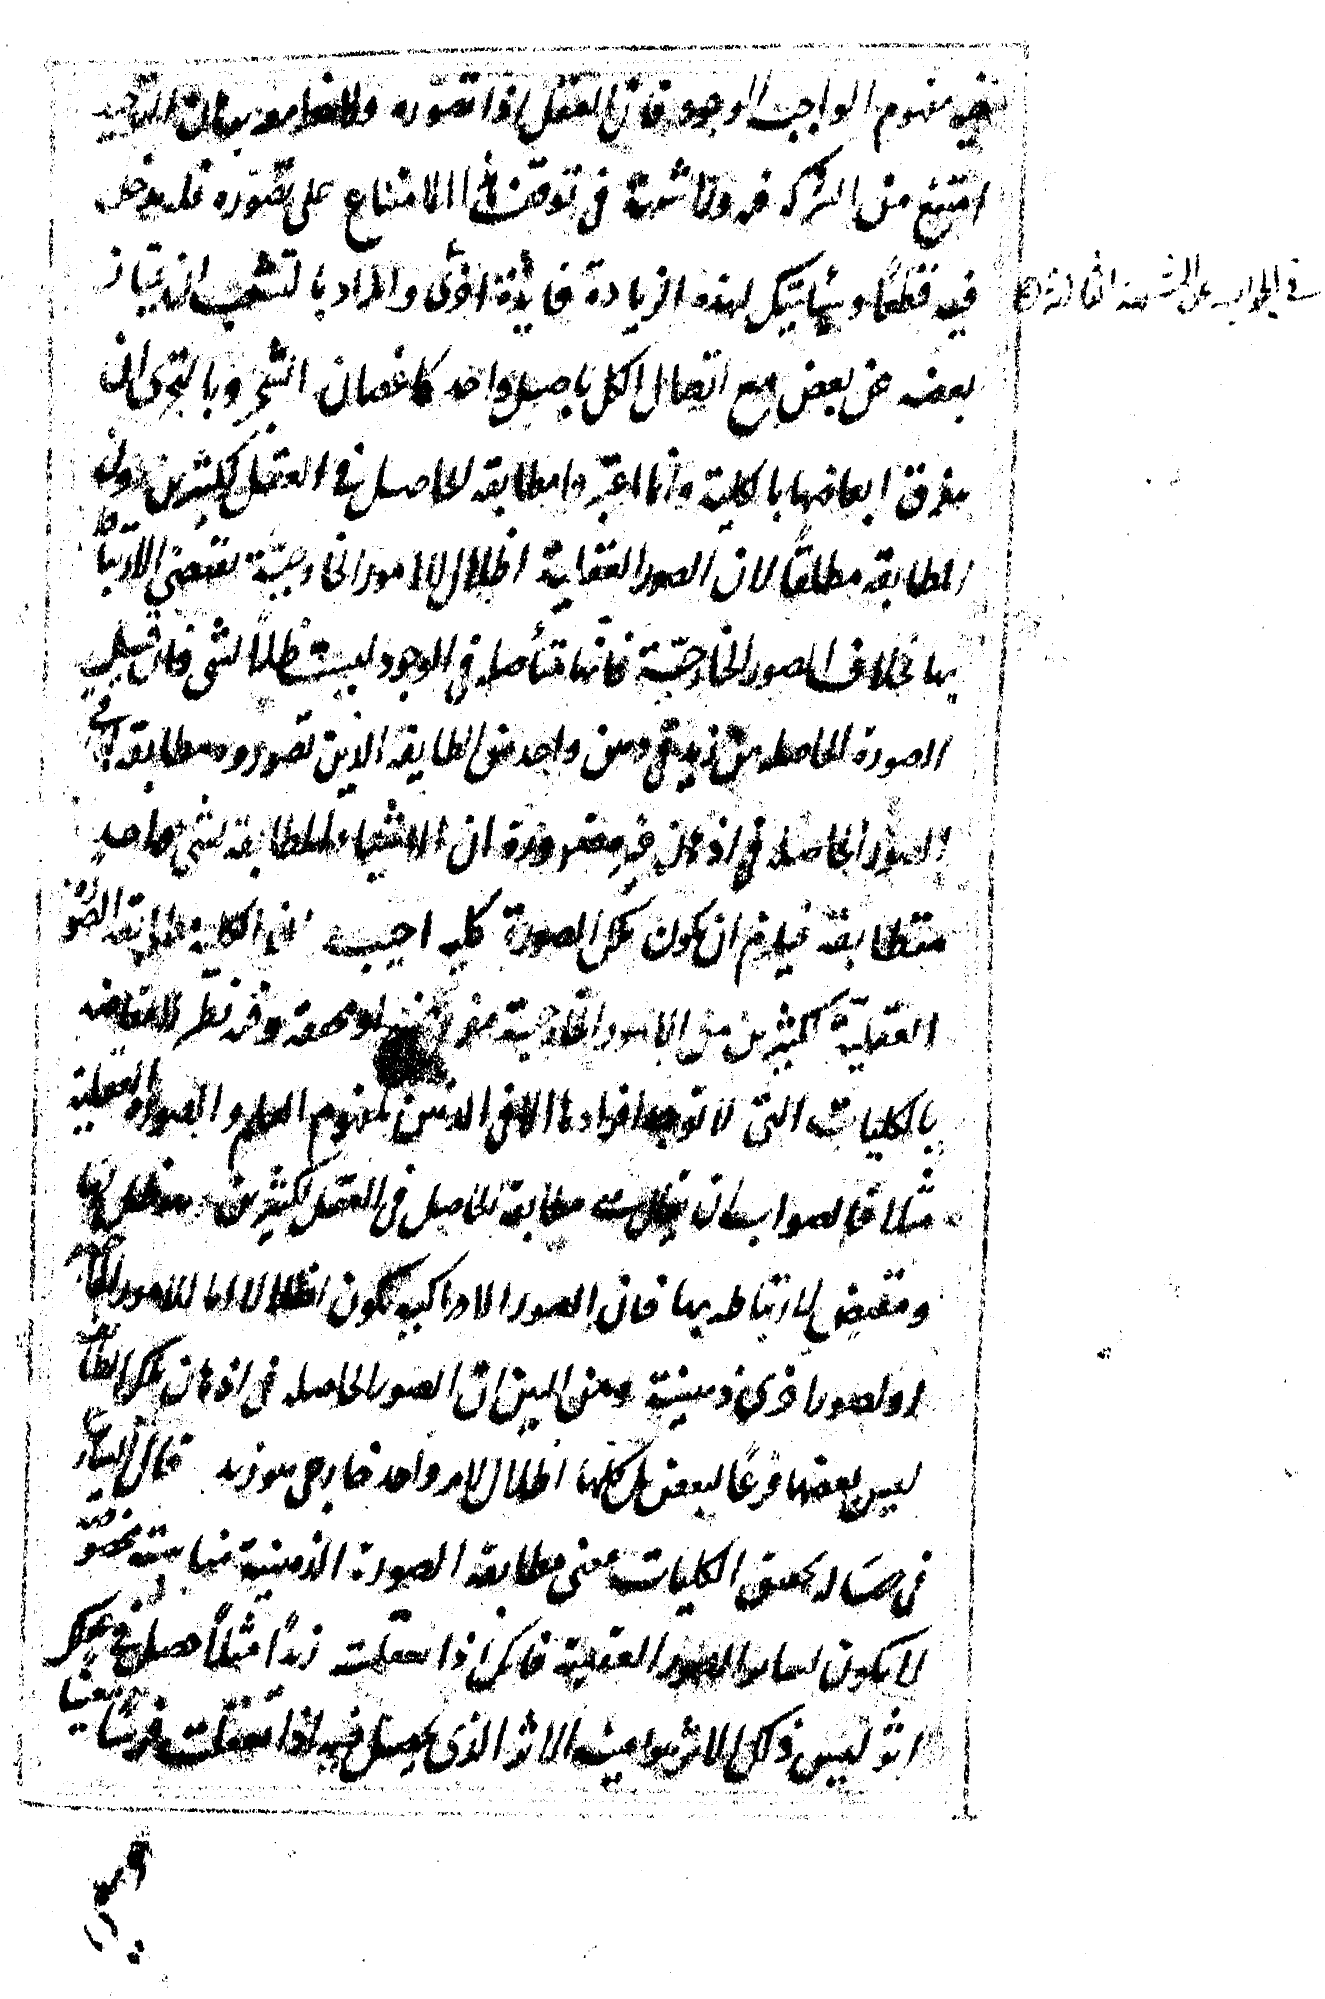 فيه مفهوم الواجب الوجود فان العقل اذا تصوره ولاحظ معه برهان التوحيد
امتنع من الشركة فيه ولا شبهة في توقف هذا الامتناع على تصوره فلا يدخل
فيه قطعًا وسيأتيك لهذه الزيادة فايدة اخرى والمراد بالتشعب ان يمتاز
في الجواب عن الشبهة الثالثة
بعضه عن بعض مع اتصال الكل باصل واحد كاغصان الشجر وبالتجزى ان
يفرق ابعاضها بالكلية وانما اعتبر مطابقة الحاصل في العقل لكثيرين دون
المطابقة مطلقًا لان الصور العقلية اظلال للامور الخارجية يقتضي الارتباط
بها بخلاف الصور الخارجية فانها متأصلة في الوجود ليست ظلًا لشي فان قيل
الصورة الحاصلة من زيد في ذهن واحد من الطايفة الذين تصوروه مطابقة لباقي
الصور الحاصلة في اذهان غيره ضرورة ان الاشياء المطابقة لشي واحد
متطابقة فيلزم ان يكون تلك الصورة كلية اجيب بان الكلية مطابقة الصورة
العقلية لكثيرين من الامور الخارجية وفيه نظر لانتقاضه
بالكليات التي لا توجد افرادها الا في الذهن كمفهوم العلم والصورة العقلية
مثلا فالصواب ان مطابقة الحاصل في العقل لكثيرين هو ظل لها
ومقتض لارتباطه بها فان الصور الادراكية تكون اظلالا اما للامور الخارجية
او لصور اخرى ذهنية ومن البين ان الصور الحاصلة في اذهان تلك الطايفة
ليس بعضها فرعًا لبعض بل كلها اظلال لامر واحد خارجي هو زيد قال الشارح
في تحقيق الكليات معنى مطابقة الصورة الذهنية مناسبة مخصوصة
لا يكون لساير الصور العقلية فانك اذا تعقلت زيدًا مثلًا حصل في عقلك
اثر ليس ذلك الاثر هو عينه الاثر الذي يحصل فيه اذا تعقلت فرسًا معينا